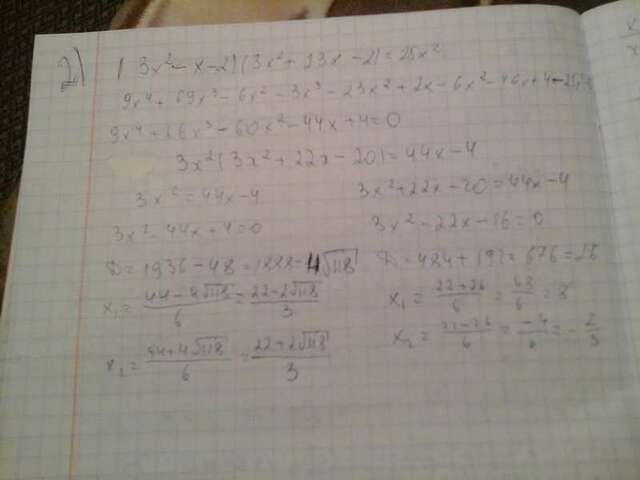 2) (3x² - x - 2)(3x² + 23x - 2) = 25x²
9x⁴ + 69x³ - 6x² - 3x³ - 23x² + 2x - 6x² - 46x + 4 - 25x²
9x⁴ + 66x³ - 60x² - 44x + 4 = 0
3x²(3x² + 22x - 20) = 44x - 4
3x² = 44x - 4
3x² + 22x - 20 = 44x - 4
3x² - 44x + 4 = 0
3x² - 22x - 16 = 0
D = 1936 - 48 = 1888 = 4√118
D = 484 + 192 = 676 = 26
x₁ = (44 - 4√118)/6 = (22 - 2√118)/3
x₁ = (22 + 26)/6 = 48/6 = 8
x₂ = (44 + 4√118)/6 = (22 + 2√118)/3
x₂ = (22 - 26)/6 = -4/6 = -2/3